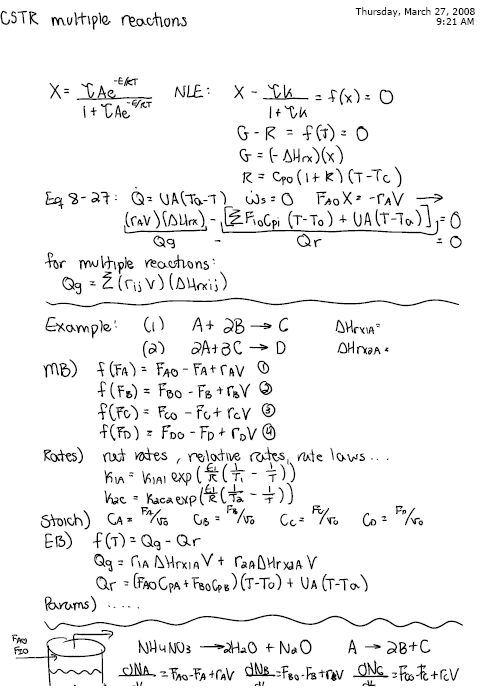 CSTR multiple reactions
Thursday, March 27, 2008
9:21 AM
X = τAe^(-E/RT) / (1 + τAe^(-E/RT))   NLE:   X - τk/(1+τk) = f(x) = 0
G - R = f(T) = 0
G = (-ΔHrx)(x)
R = Cpo(1+K)(T-Tc)
Eq 8-27: Q̇ = UA(Ta-T)   Ẇs = 0   FAoX = -rAV →
(rAV)(ΔHrx) - [ΣFioCpi (T-To) + UA(T-Ta)] = 0
Qg - Qr = 0
for multiple reactions:
Qg = Σ(rijV)(ΔHrxij)
Example: (1) A + 2B → C   ΔHrx1A =
(2) 2A+3C → D   ΔHrx2A =
MB) f(FA) = FAO - FA + rAV ①
f(FB) = FBO - FB + rBV ②
f(FC) = FCO - FC + rCV ③
f(FD) = FDO - FD + rDV ④
Rates) net rates, relative rates, rate laws...
K1A = K1A1 exp(E1/R (1/T1 - 1/T))
K2C = K2C2 exp(E1/R (1/T2 - 1/T))
Stoich) CA = FA/v0   CB = FB/v0   CC = FC/v0   CD = FD/v0
EB) f(T) = Qg - Qr
Qg = r1A ΔHrx1A V + r2A ΔHrx2A V
Qr = (FAOCPA + FBOCPB)(T-To) + UA(T-Ta)
Params) .....
FAO
FIO
NH4NO3 → 2H2O + N2O   A → 2B+C
dNA = FAO-FA+rAV   dNB = FBO-FB+rBV   dNC = FCO-FC+rCV